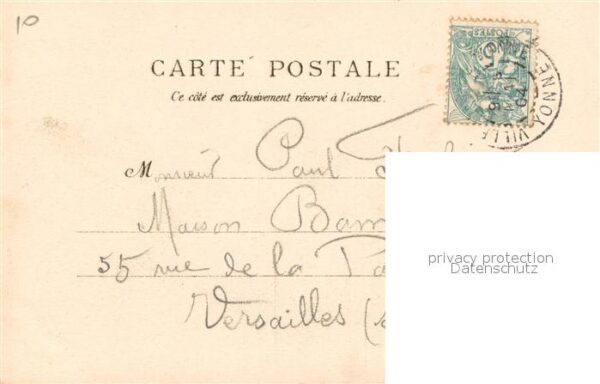 10
CARTE POSTALE
Ce côté est exclusivement réservé à l'adresse.
Monsieur Paul
Maison
55 rue de la
Versailles (
privacy protection
Datenschutz